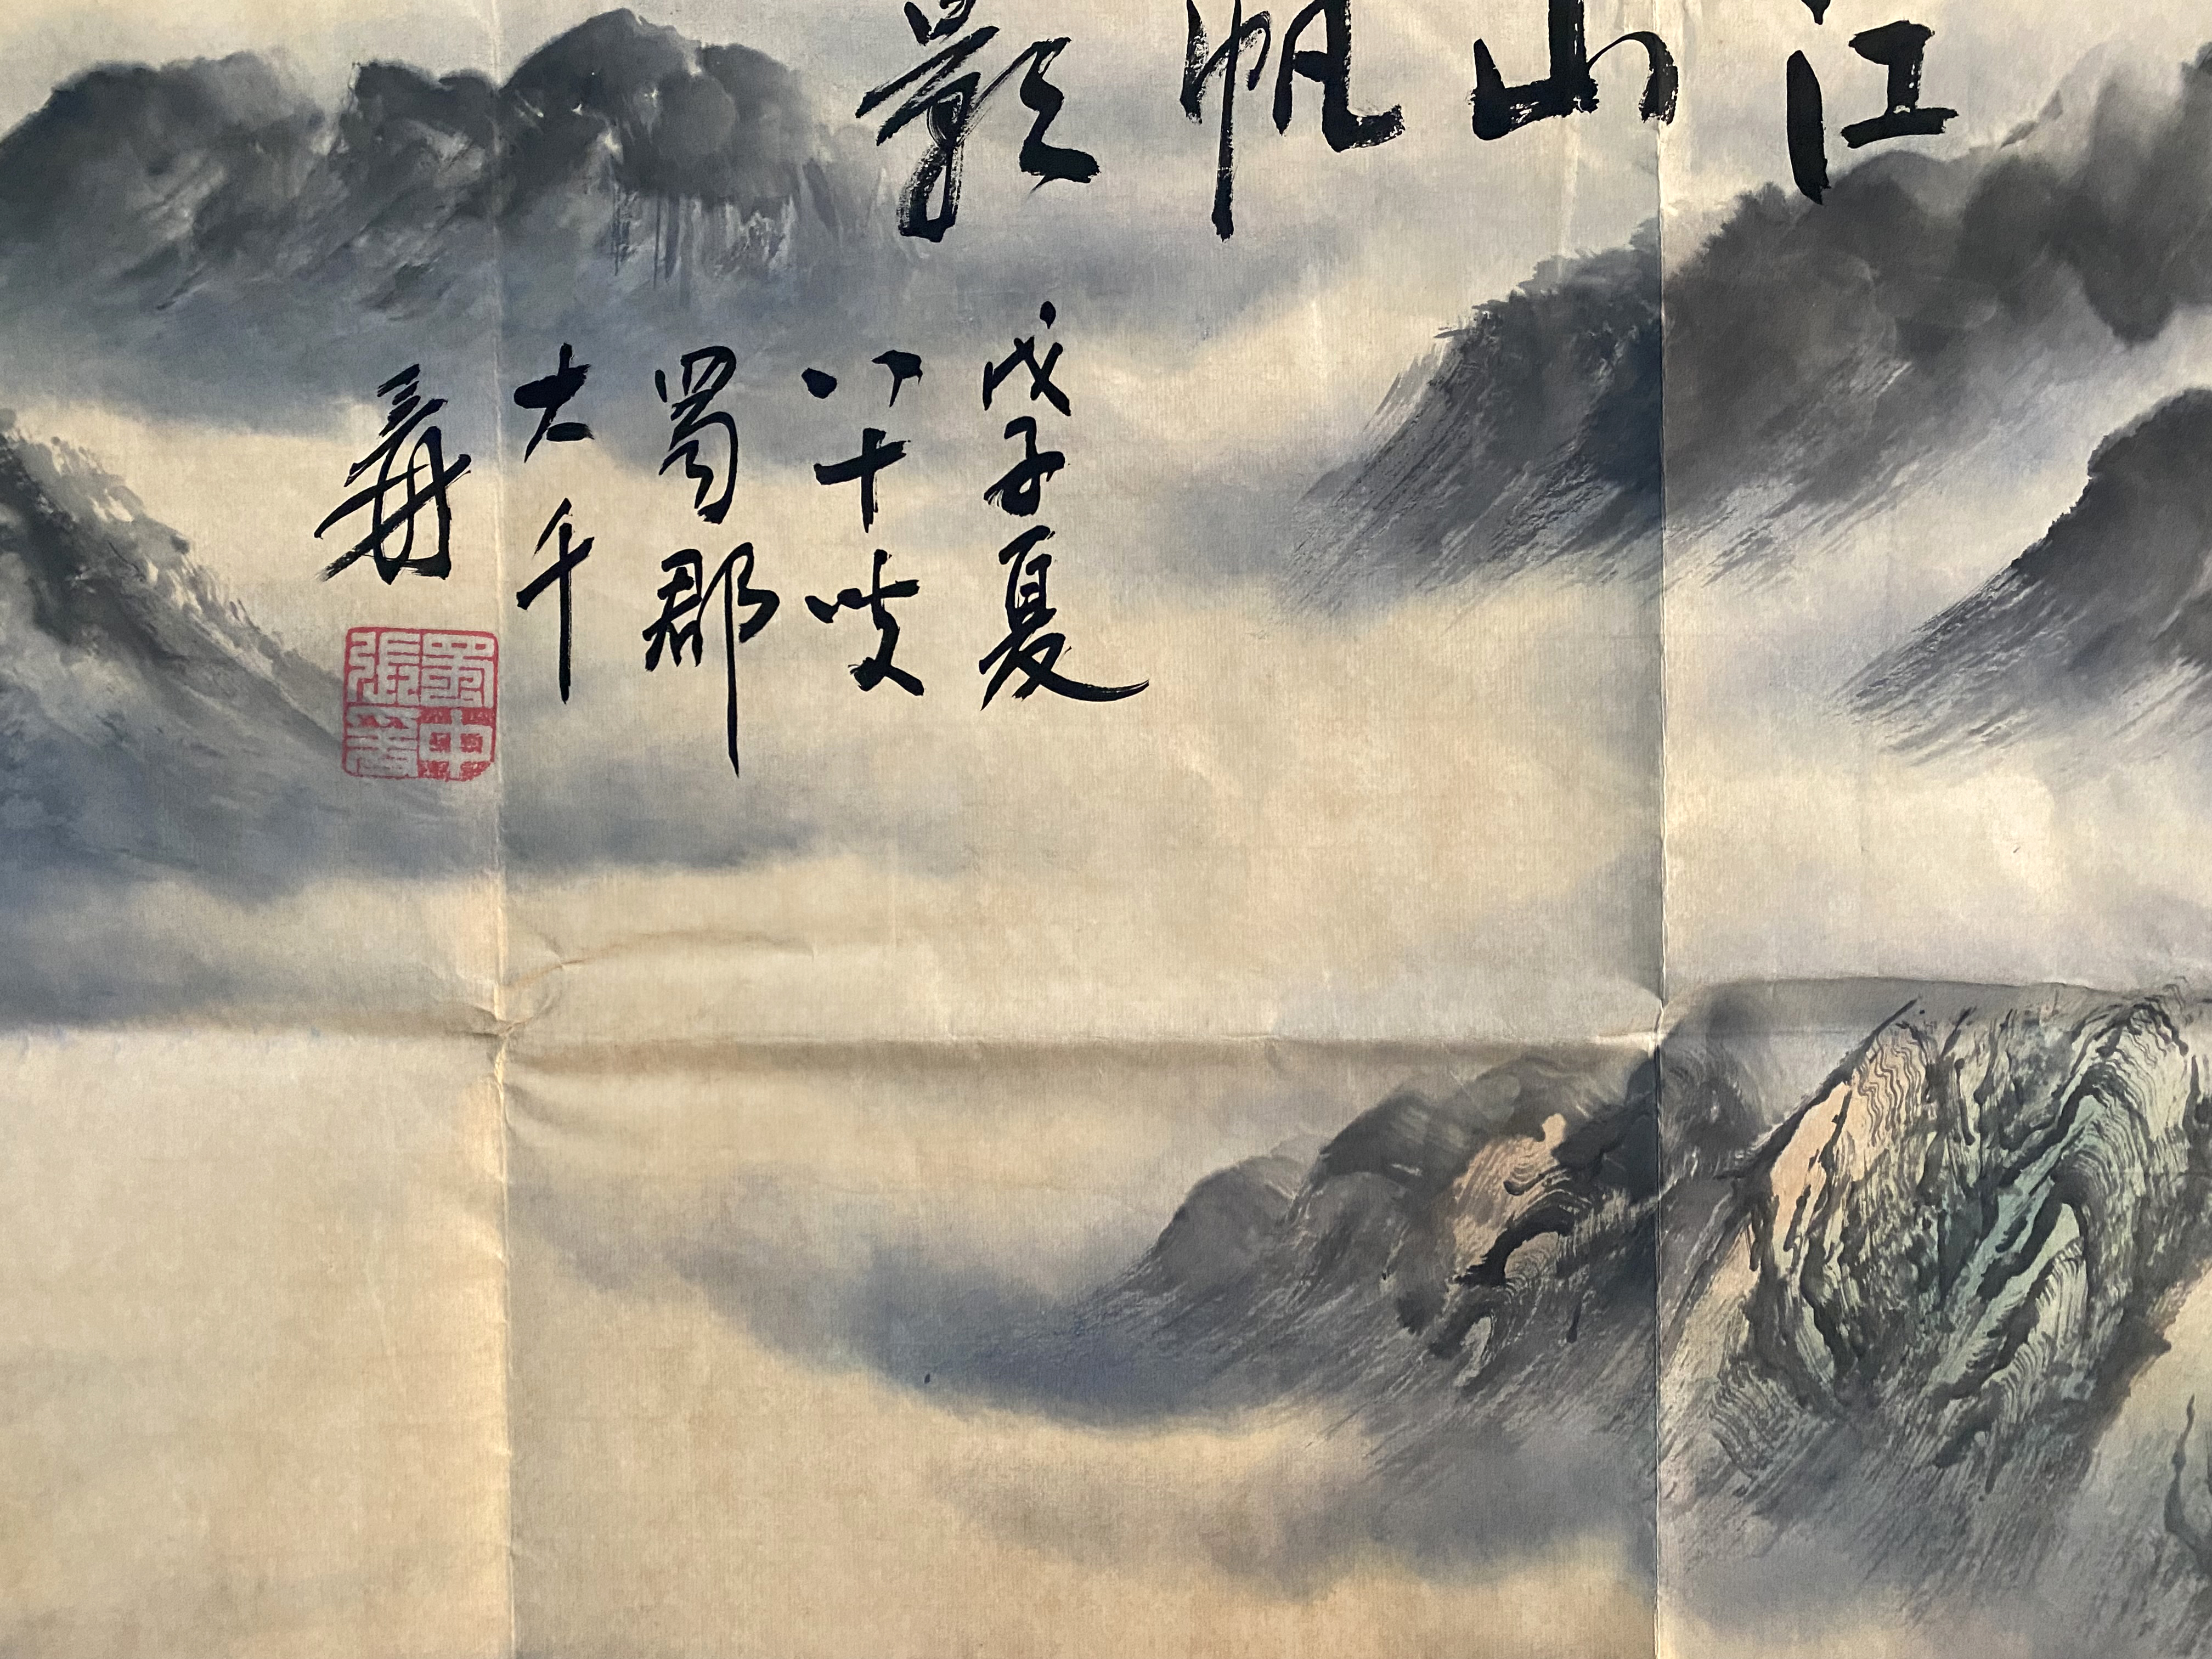 江山帆影
戊子夏
八十叟
蜀郡
大千
爰
蜀中張爰